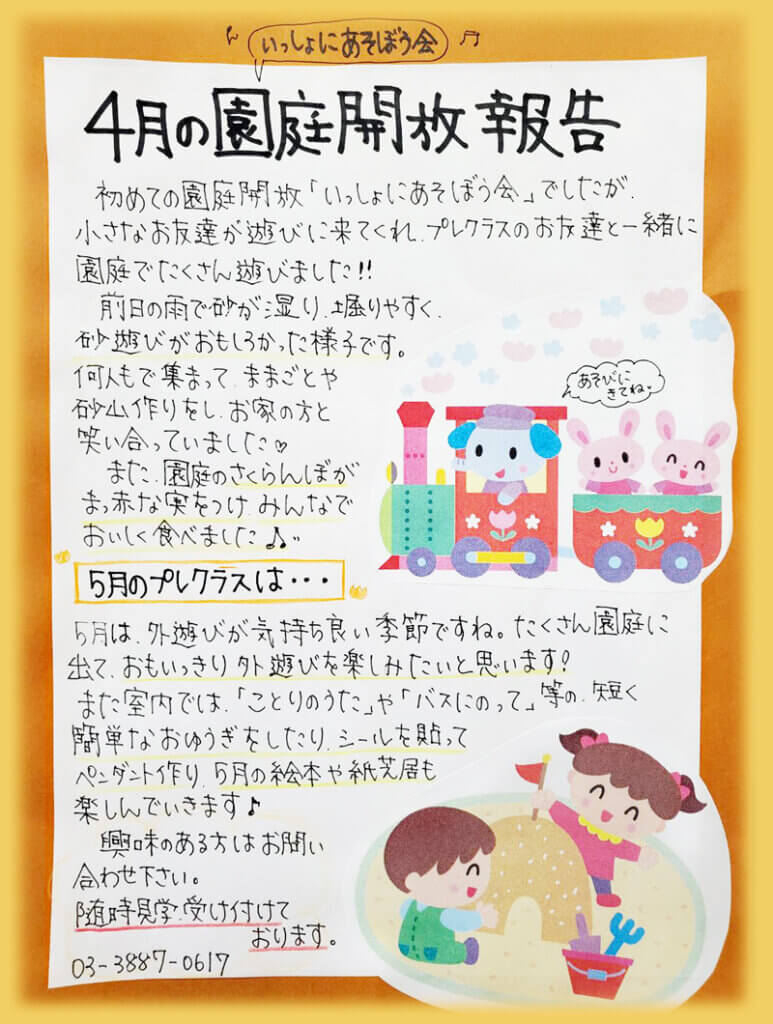 いっしょにあそぼう会
4月の園庭開放報告
初めての園庭開放「いっしょにあそぼう会」でしたが、
小さなお友達が遊びに来てくれ、プレクラスのお友達と一緒に
園庭でたくさん遊びました!!
前日の雨で砂が湿り、掘りやすく、
砂遊びがおもしろかった様子です。
何人もで集まって、ままごとや
砂山作りをし、お家の方と
笑い合っていました♡
また、園庭のさくらんぼが
まっ赤な実をつけ、みんなで
おいしく食べました♪
あそびに
きてね♡
5月のプレクラスは・・・
5月は、外遊びが気持ち良い季節ですね。たくさん園庭に
出て、おもいっきり外遊びを楽しみたいと思います!
また室内では、「ことりのうた」や「バスにのって」等の、短く
簡単なおゆうぎをしたり、シールを貼って
ペンダント作り、5月の絵本や紙芝居も
楽しんでいきます♪
興味のある方はお問い
合わせ下さい。
随時見学、受け付けて
おります。
03-3887-0617